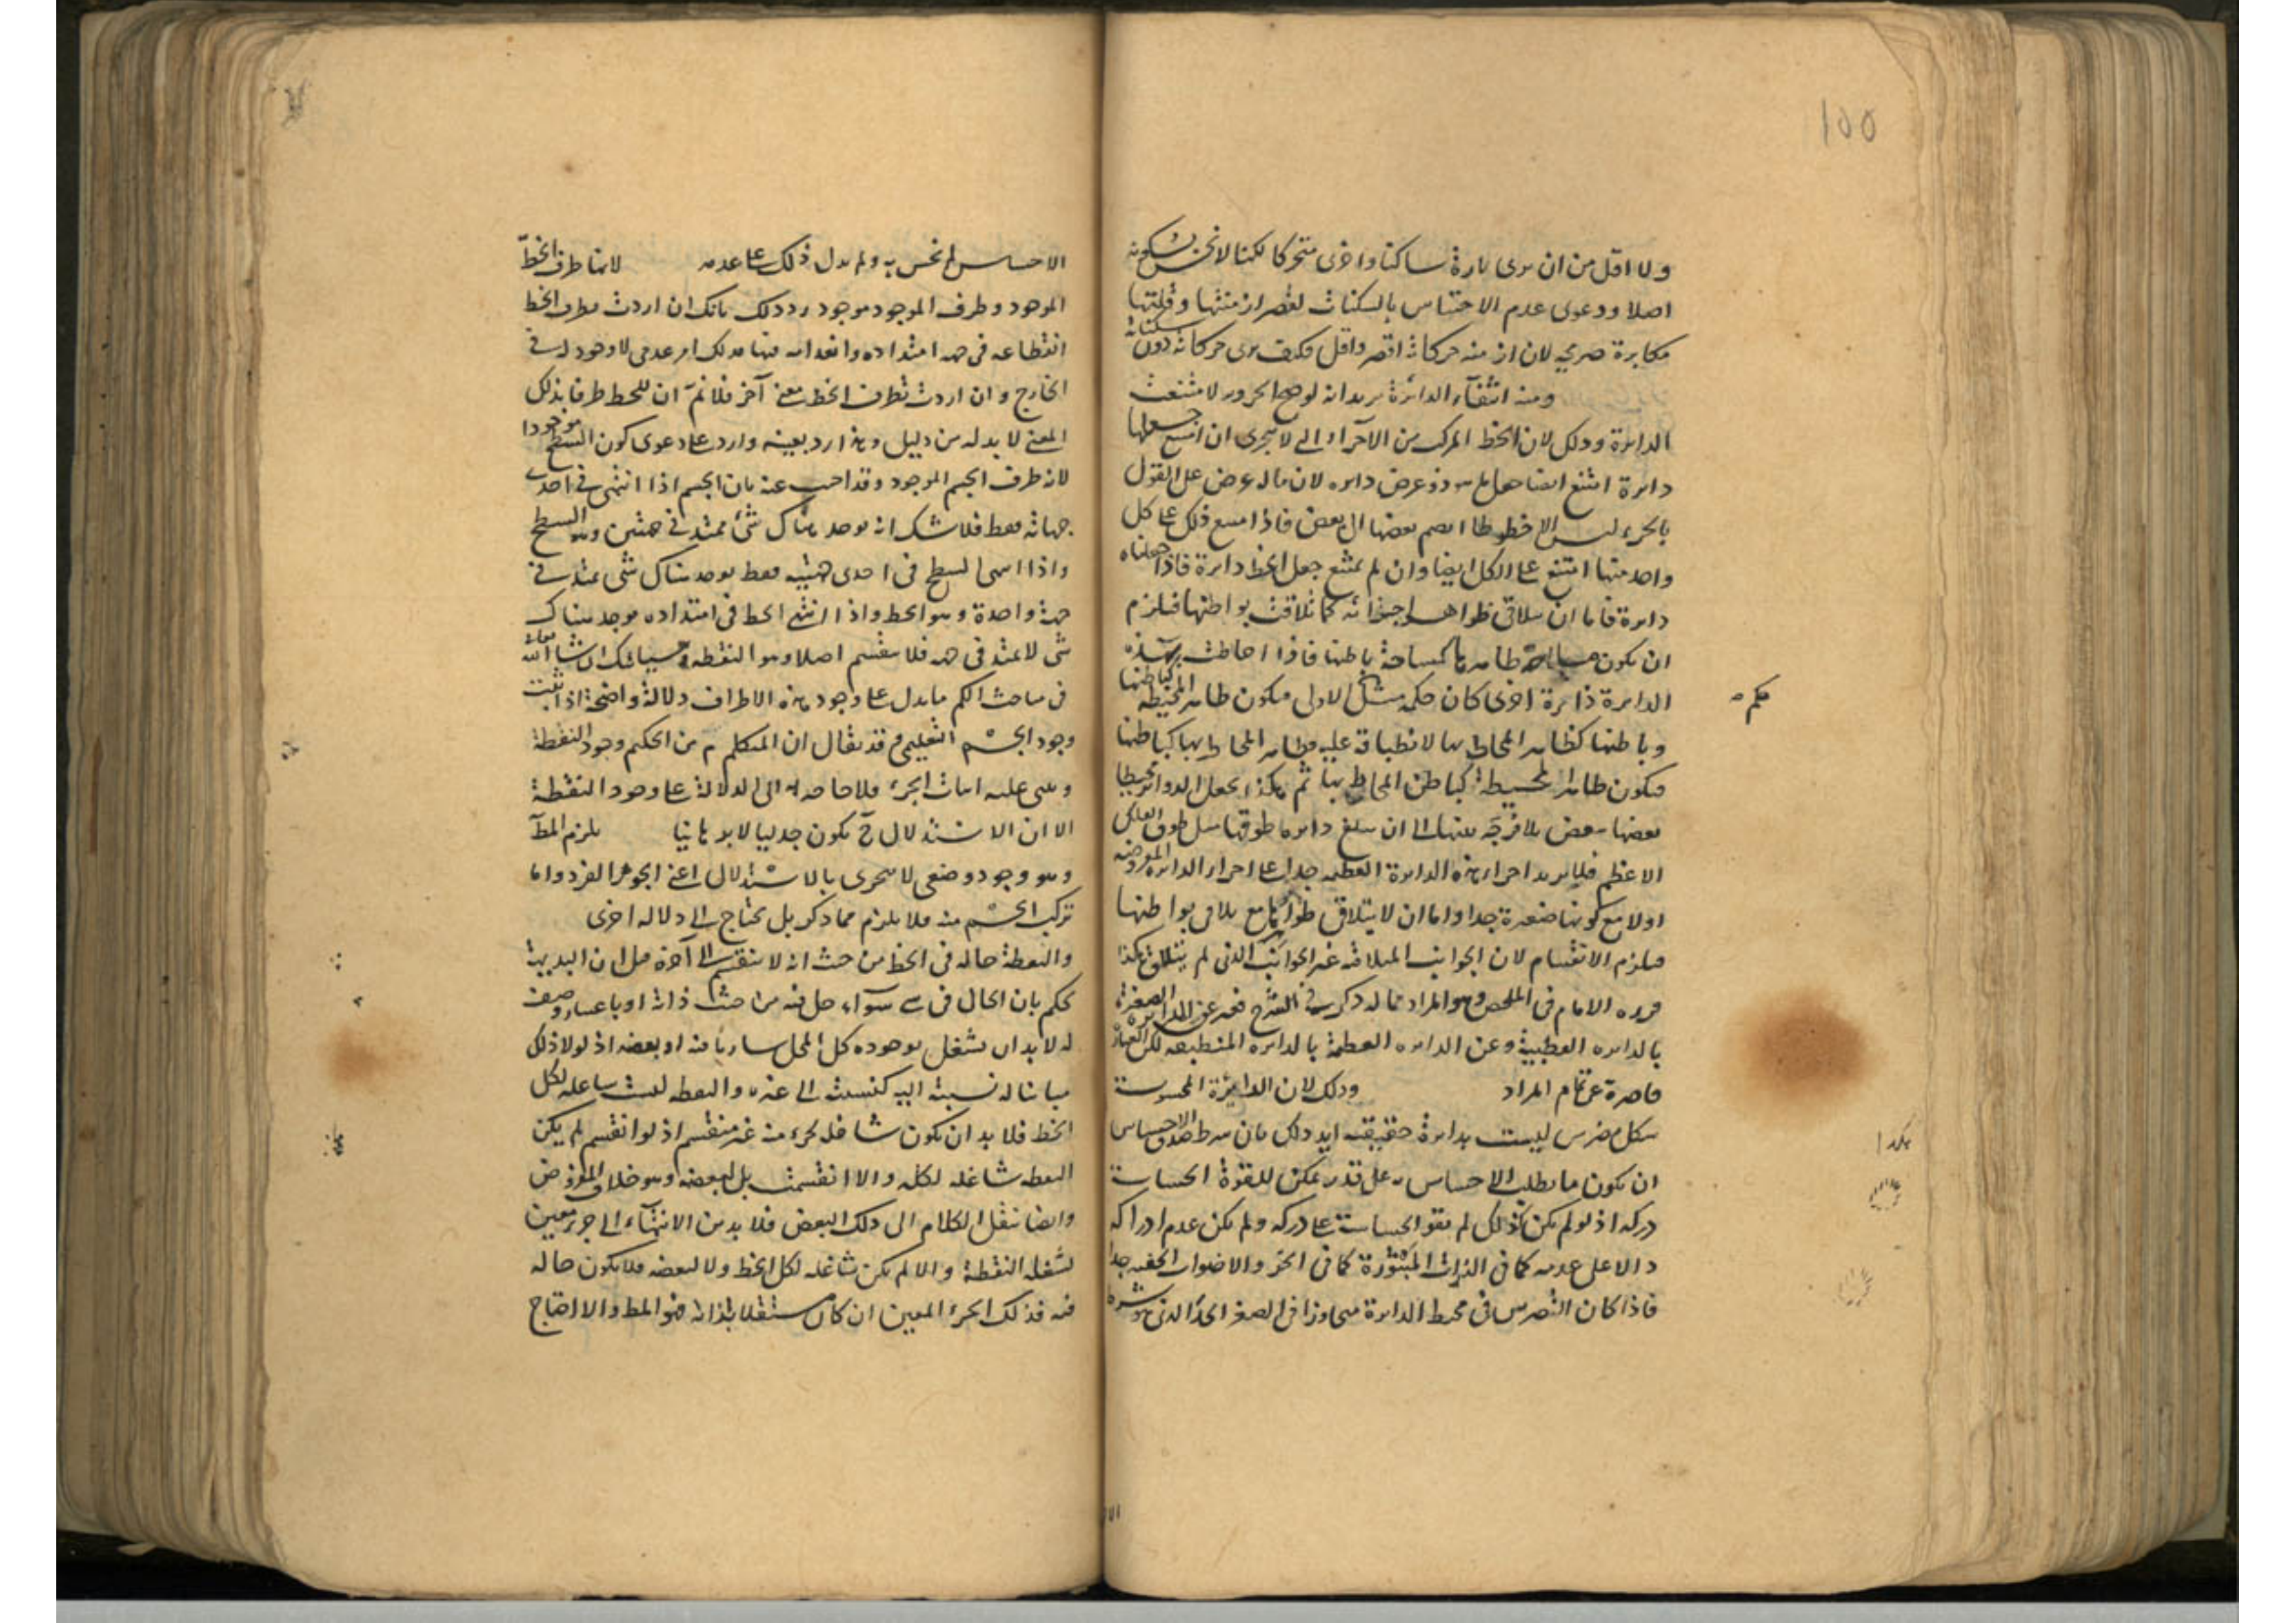 ١٥٥
ولا اقل من ان يرى تارة ساكنا واخرى متحركا لكنا لا نحس بسكونه
اصلا ودعوى عدم الاحساس بالسكنات لقصر ازمنتها وقلتها
مكابرة صريحة لان ازمنة حركاته اقصر واقل فكيف يرى حركاته دون سكناته
ومنه انتفاء الدائرة يريد انه لو صح الجزء لامتنعت
الدائرة وذلك لان الخط المركب من الاجزاء التي لا تتجزى ان امتنع جعلها
دائرة امتنع ايضا جعل ذو عرض دائرة لان ماله عرض على القول
بالجزء ليس الا خطوطا انضم بعضها الى بعض فاذا امتنع ذلك على كل
واحد منها امتنع على الكل ايضا وان لم يمتنع جعل الخط دائرة فاذا جعلناه
دائرة فاما ان يتلاقى ظواهر اجزائه كما تلاقت بواطنها فيلزم
ان يكون مساحة ظاهرها كمساحة باطنها فاذا احاطت بهذه
الدائرة دائرة اخرى كان حكمه مثل الاولى فيكون ظاهر المحيطة كباطنها
وباطنها كظاهر المحاط بها لانطباقه عليه وظاهر المحاط بها كباطنها
فيكون ظاهر المحيطة كباطن المحاط بها ثم هكذا يجعل الدوائر محيطا
بعضها ببعض بلا فرجة بينها الى ان يبلغ دائرة طوقها مثل طوق الفلك
الاعظم فلا يزيد اجزاء هذه الدائرة العظيمة جدا على اجزاء الدائرة المفروضة
اولا مع كونها صغيرة جدا واما ان لا يتلاقى ظواهرها مع تلاقي بواطنها
فيلزم الانقسام لان الجوانب المتلاقية غير الجوانب التي لم يتلاق هكذا
قرره الامام في الملخص وهو المراد مما له ذكر في الشرح فعبر عن الدائرة الصغيرة
بالدائرة القطبية وعن الدائرة العظيمة بالدائرة المنطبقة لكن العبارة
قاصرة عن تمام المراد وذلك لان الدائرة المحسوسة
شكل مضرس ليست بدائرة حقيقية ايد ذلك بان شرط صدق الاحساس
ان يكون ما يطلب الاحساس به على قدر يمكن للقوة الحساسة
دركه اذ لو لم يكن كذلك لم تقو الحساسة على دركه ولم يكن عدم ادراكه
دالا على عدمه كما في الذرات المبثوثة كما في الجو والاصوات الخفية جدا
فاذا كان التضرس في محيط الدائرة متجاوزا في الصغر الحد الذي هو شرط
حكمه
هكذا
الاحساس لم نحس به ولم يدل ذلك على عدمه لانها طرف الخط
الموجود وطرف الموجود موجود رد ذلك بانك ان اردت بطرف الخط
انقطاعه في جهة امتداده وانعدامه فيها فذلك امر عدمي لا وجود له في
الخارج وان اردت بطرف الخط معنى آخر فلا نم ان للخط طرفا بذلك
المعنى لا بد له من دليل وهذا رد بعينه وارد على دعوى كون السطح موجودا
لانه طرف الجسم الموجود وقد اجيب عنه بان الجسم اذا انتهى في احدى
جهاته فقط فلا شك انه يوجد هناك شئ ممتد في جهتين وهو السطح
واذا انتهى السطح في احدى جهتيه فقط يوجد هناك شئ يمتد في
جهة واحدة وهو الخط واذا انتهى الخط في امتداده يوجد هناك
شئ لا يمتد في جهة فلا ينقسم اصلا وهو النقطة وسيأتيك ان شاء الله تعالى
في مباحث الكم ما يدل على وجود هذه الاطراف دلالة واضحة اذا ثبت
وجود الجسم التعليمي وقد يقال ان المتكلم من الحكيم وجود النقطة
ويبنى عليه اثبات الجزء فلا حاجة له الى الدلالة على وجود النقطة
الا ان الاستدلال ح يكون جدليا لا برهانيا يلزم المط
وهو وجود وضعي لا يتجزى بالاستدلال اعني الجوهر الفرد واما
تركب الجسم منه فلا يلزم مما ذكر بل يحتاج الى دلالة اخرى
والنقطة حالة في الخط من حيث انه لا ينقسم الى آخره قيل ان البديهة
تحكم بان الحال في شئ سواء حل فيه من حيث ذاته او باعتبار وصف
له لا بد ان يشغل بوجوده كل المحل ساريا فيه او بعضه اذ لولا ذلك
مباينا له نسبته اليه كنسبته الى غيره والنقطة ليست شاغلة لكل
الخط فلا بد ان يكون شاغلة لجزء منه غير منقسم اذ لو انقسم لم يكن
النقطة شاغلة لكله والا انقسمت بل لبعضه وهو خلاف المفروض
وايضا ننقل الكلام الى ذلك البعض فلا بد من الانتهاء الى جزء معين
تشغله النقطة والا لم يكن شاغلة لكل الخط ولا لبعضه فلا يكون حالة
فيه فذلك الجزء المعين ان كان مستقلا بذاته فهو المط والا احتاج